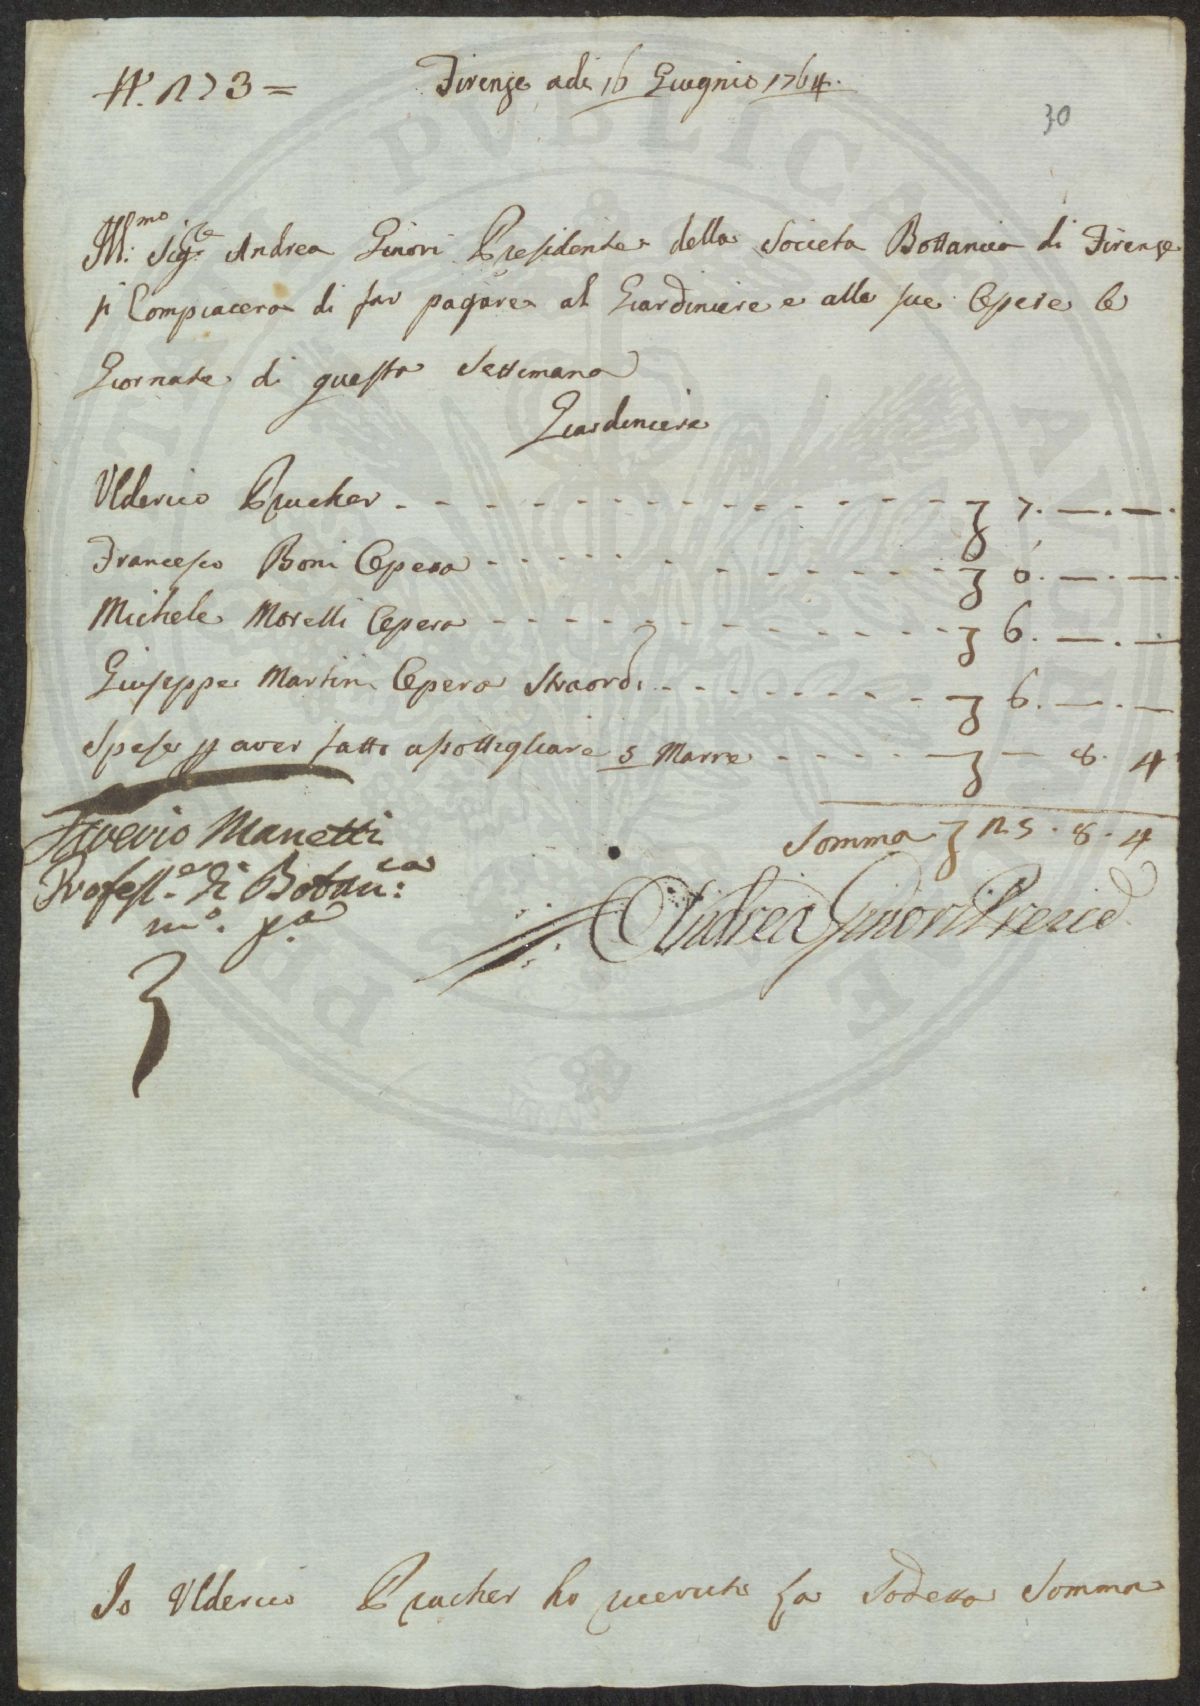 N. 173 =
Firenze adi 16 Giugnio 1764.
30
Ill:mo Sig:re Andrea Ginori Presidente della Societa Bottanica di Firenze
si Compiacera di far pagare al Giardiniere e alle sue Opere le
Giornate di questa Settimana
Giardiniere
Ulderico Prucher - - - 7. —. —.
Francesco Boni Opera - - - 6. —. —.
Michele Morelli Opera - - - 6. —. —
Giuseppe Martini Opera Straord: - - - 6. —. —
Spese p aver fatto assottigliare 5 Marre - - - — 8. 4
Somma 25. 8. 4
Saverio Manetti
Profess.e di Botan:ca
m.o p.a
Andrea Ginori Presid.
Io Ulderico Prucher ho ricevuto la Sodetta Somma
PUBLICA